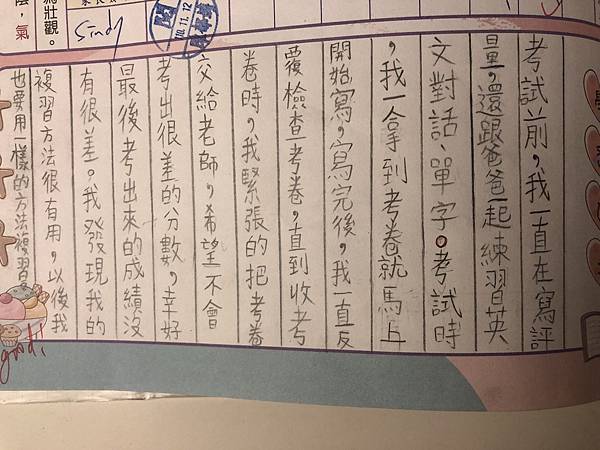 考試前，我一直在寫評
量，還跟爸爸一起練習英
文對話、單字。考試時
，我一拿到考卷就馬上
開始寫，寫完後，我一直反
覆檢查考卷，直到收考
卷時，我緊張的把考卷
交給老師，希望不會
考出很差的分數，幸好
最後考出來的成績沒
有很差。我發現我的
複習方法很有用，以後我
也要用一樣的方法複習
壯觀。
，氣
Sindy
10.11.12
good!